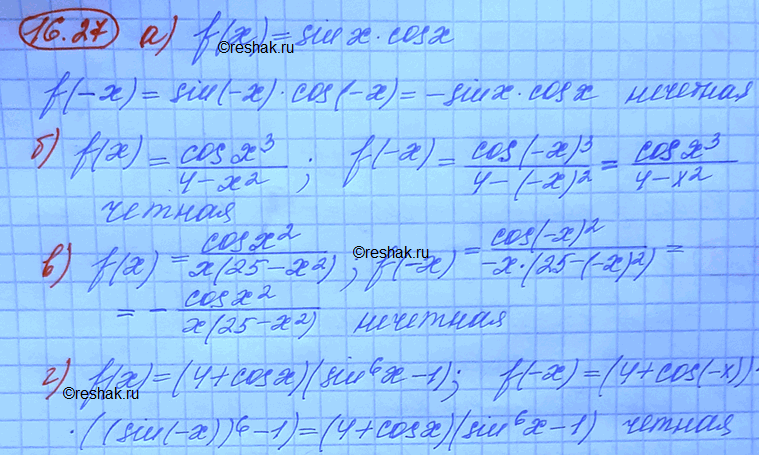 16.27 а) f(x) = sin x · cos x
©reshak.ru
f(-x) = sin(-x) · cos(-x) = -sin x · cos x нечетная
б) f(x) = cos x³ / 4 - x² ; f(-x) = cos(-x)³ / 4 - (-x)² = cos x³ / 4 - x²
четная
в) f(x) = cos x² / x(25 - x²) , f(-x) = cos(-x)² / -x · (25 - (-x)²) =
©reshak.ru
= - cos x² / x(25 - x²) нечетная
г) f(x) = (4 + cos x)(sin⁶x - 1); f(-x) = (4 + cos(-x)) ·
©reshak.ru
· ((sin(-x))⁶ - 1) = (4 + cos x)(sin⁶x - 1) четная